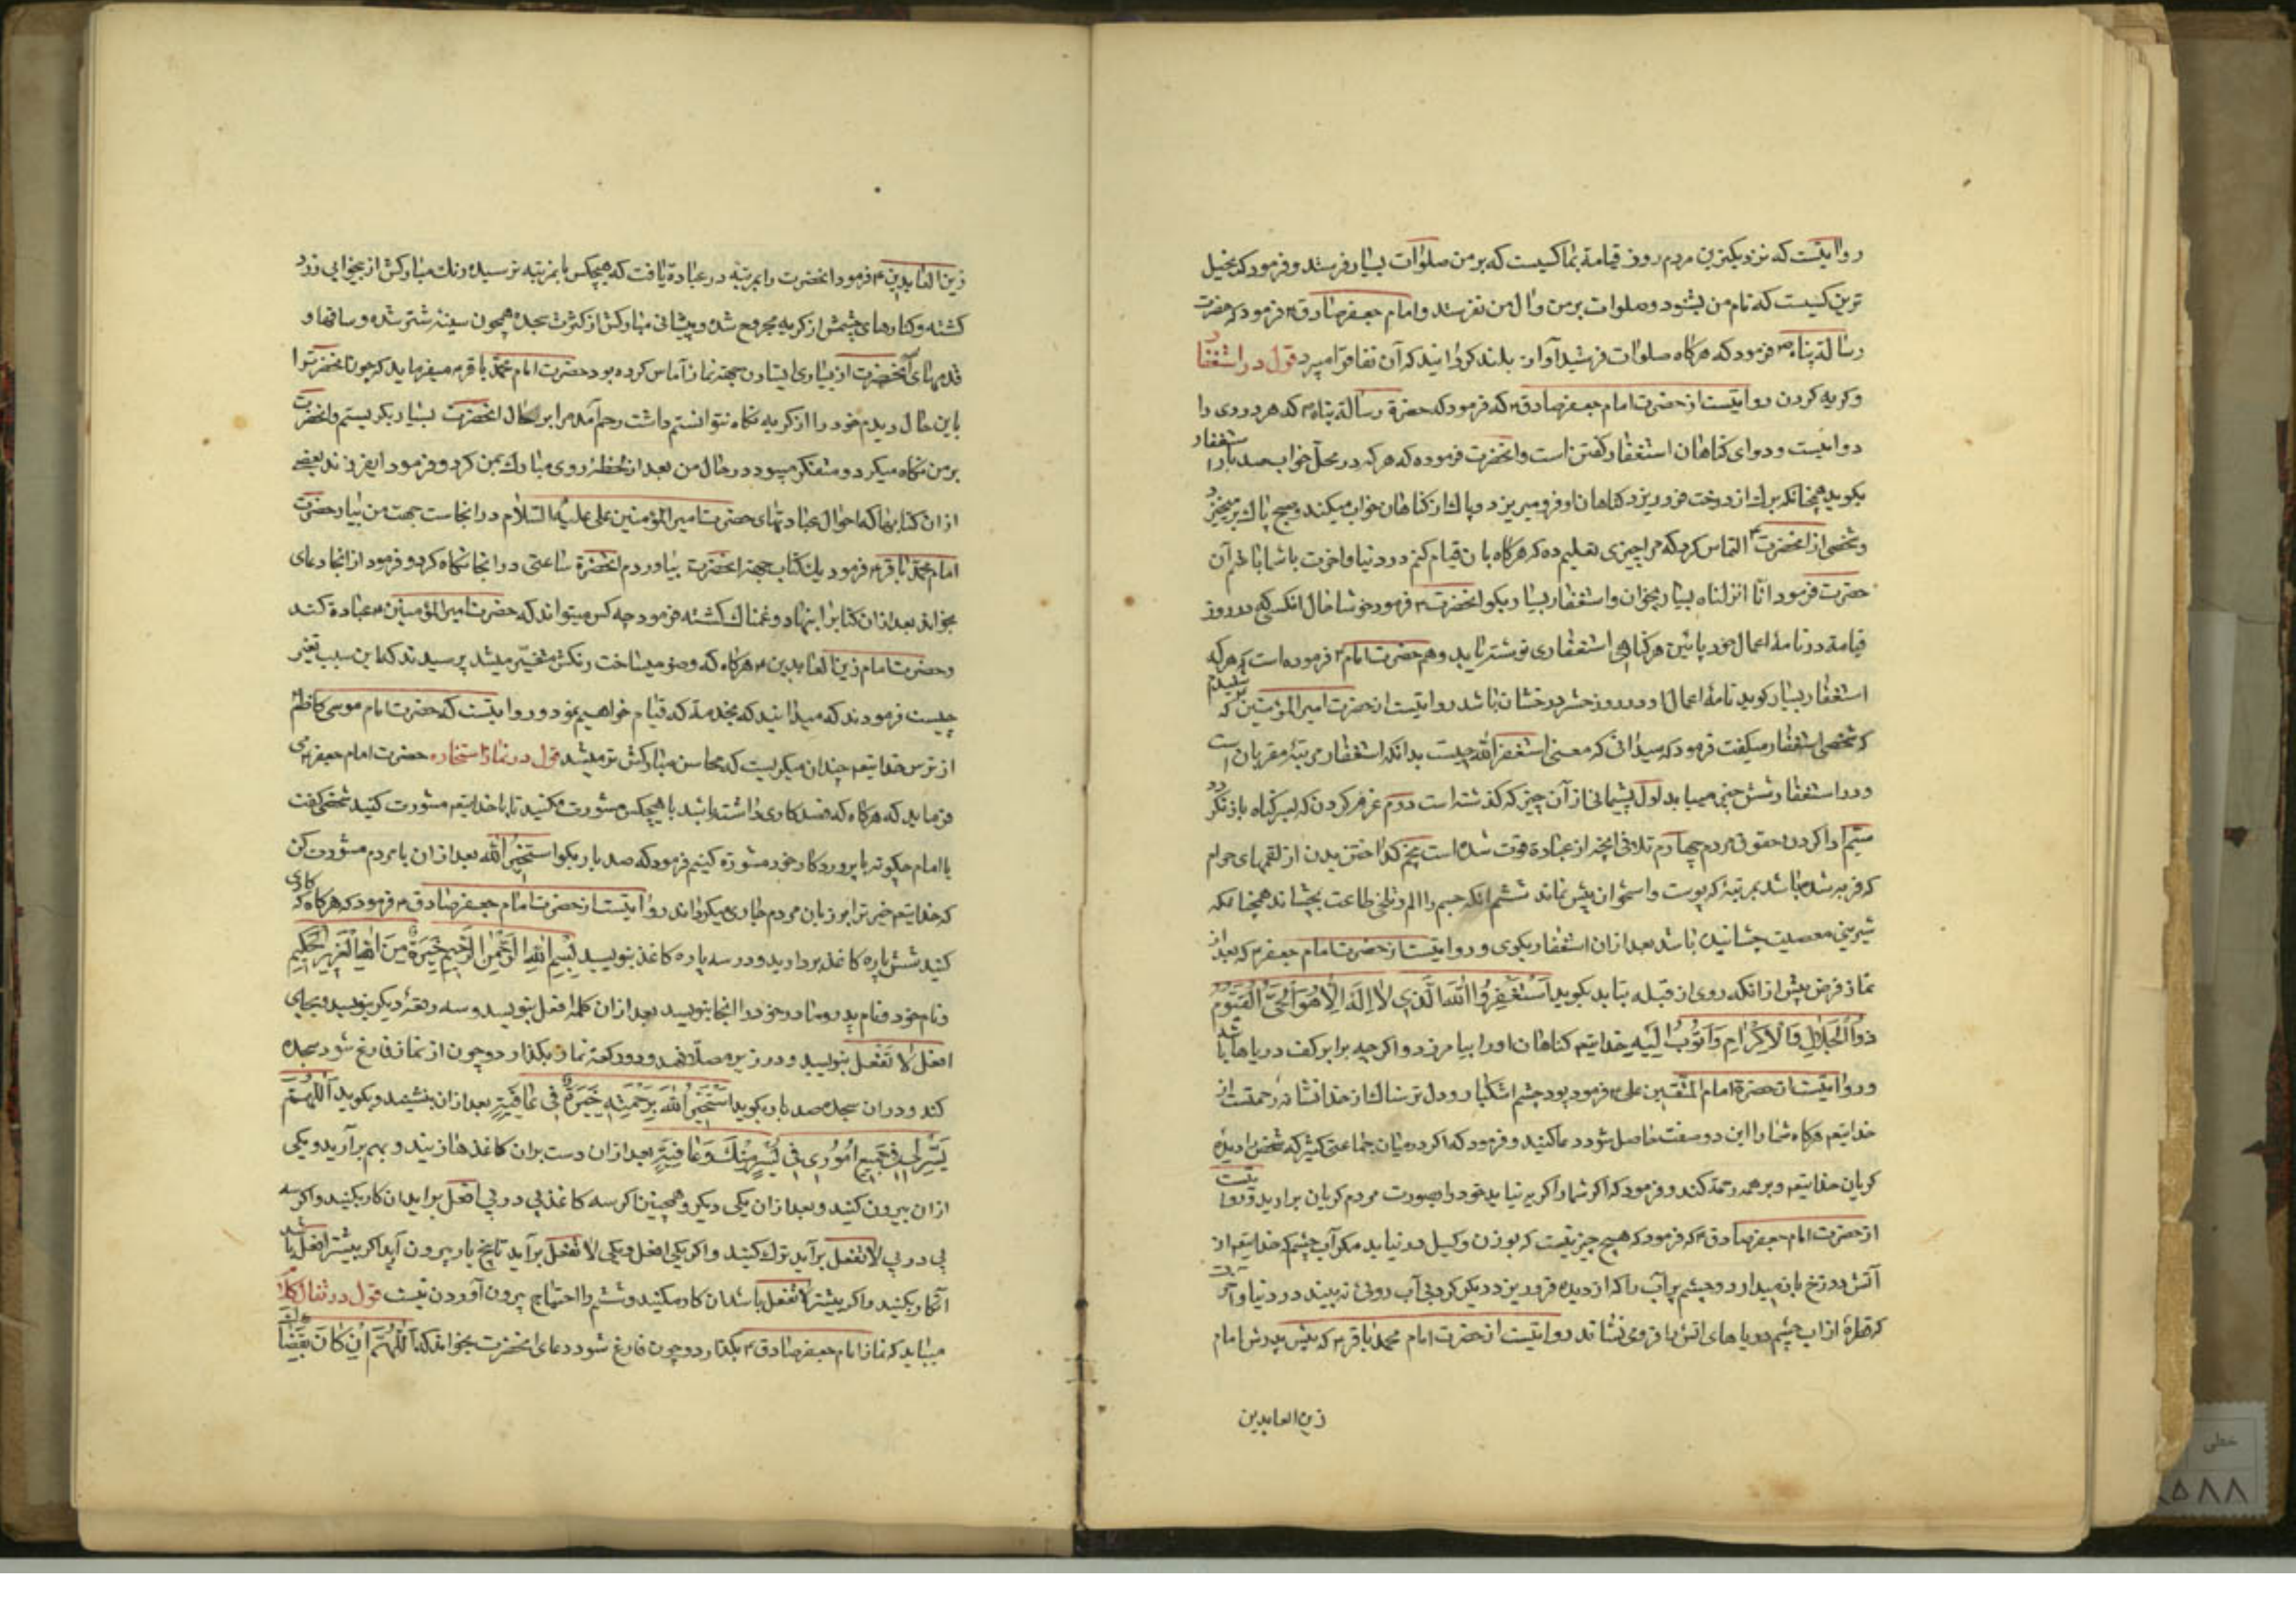 روایتست که نزدیکترین مردم روز قیامة بما کسیست که بر من صلوات بسیار فرستد و فرمود که بخیل
ترین کسیست که نام من بشنود و صلوات بر من و ال من نفرستد و امام جعفر صادق ۴ فرمود که حضرت
رسالة پناه ص فرمود که هرکاه صلوات فرستید آواز بلند کردانید که آن نفاق را میبرد قول در استغفار
و کریه کردن روایتست از حضرت امام جعفر صادق ۴ که فرمود که حضرة رسالة پناه ص که هر دردی را
دوائیست و دوای کناهان استغفار کفتن است و انحضرت فرموده که هرکه در محل خواب صد بار استغفار
بکوید همچنانکه برك از درخت فرو ریزد کناهان او فرو میریزد و پاك از کناهان خواب میکند و صبح پاك بر میخیزد
و شخصی از انحضرت ۴ التماس کرد که مرا چیزی تعلیم ده که هرکاه بان قیام کنم در دنیا و اخرت با شما باشم آن
حضرت فرمود انا انزلناه بسیار بخوان و استغفار بسیار بکو انحضرت ۴ فرمود خوشا حال انکسی که در روز
قیامة در نامهٔ اعمال خود پائین هر کناهی استغفاری نوشته یابد و هم حضرت امام ۴ فرموده است که هرکه
استغفار بسیار کوید نامهٔ اعمال او در روز حشر درخشان باشد روایتست از حضرت امیر المؤمنین که شنیدم
که شخصی استغفار میکفت فرمود که میدانی که معنی استغفر الله چیست بدانکه استغفار مرتبهٔ مقربان است
و در استغفار شش چیز میباید اول پشیمانی از آن چیز که کذشته است دوم عزم کردن که بسر کناه باز نکردد
سیم ادا کردن حقوق مردم چهارم تلافی انچه از عبادة فوت شده است پنجم کداختن بدن از لقمهای حرام
که فربه شده باشد بمرتبهٔ که پوست و استخوان بیش نماند ششم انکه جسم را الم و تلخی طاعت بچشاند همچنانکه
شیرینی معصیت چشانیده باشد بعد از ان استغفار بکوی و روایتست از حضرت امام جعفر ۴ که بعد از
نماز فرض پیش از انکه روی از قبله بتابد بکوید اَسْتَغْفِرُ اللهَ الَّذِي لا اِلَهَ اِلّا هُوَ الْحَيُّ الْقَيُّومُ
ذُو الْجَلالِ وَالْاِكْرامِ وَاَتُوبُ اِلَيْهِ خدایتعه کناهان او را بیامرزد و اکرچه برابر کف دریاها باشد
و روایتست از حضرة امام المتقین علی ۴ فرمود بود چشم اشکبار و دل ترسناك از خدا نشانهٔ رحمتست از
خدایتعه هرکاه شما را این دو صفت حاصل شود دعا کنید و فرمود که اکر در میان جماعتی کثیر که شخص را دیدهٔ
کریان خدایتعه و بر همه رحمة کند و فرمود که اکر شما را کریه نیاید خود را بصورت مردم کریان برارید و روایتست
از حضرت امام جعفر صادق ۴ که فرمود که هیچ چیز نیست که بوزن و کیل در نیاید مکر آب چشم که خدایتعه از
آتش دوزخ باز میدارد و چشم پر آب را که از دیده فرو ریزد دیکر کرد بی آب روئی نه بیند در دنیا و آخرت
که قطرهٔ از اب چشم دریاهای اتش را فروی نشاند روایتست از حضرت امام محمد باقر ۴ که پیش پدرش امام
زین العابدین
زین العابدین ۴ فرمود انحضرت را بمرتبه در عبادة یافت که هیچکس بامرتبه نرسیده رنك مبارکش از بیخوابی زرد
کشته و کنارهای چشمش از کریه مجروح شده و پیشانی مبارکش از کثرت سجده همچون سینهٔ شتر شده و ساقها و
قدمهای آنحضرت از بسیاری ایستادن بجهة نماز آماس کرده بود حضرت امام محمد باقر ۴ میفرماید که چون انحضرت را
باین حال دیدم خود را از کریه نکاه نتوانستم داشت رحم آمد مرا بر حال انحضرت بسیار بکریستم و انحضرت
بر من نکاه میکرد و متفکر میبود در حال من بعد از لحظهٔ روی مبارك بمن کرد و فرمود ایفرزند بعضی
از ان کتابها که احوال عبادتهای حضرت امیر المؤمنین علی علیه السلام در انجاست جهت من بیار حضرت
امام محمد باقر ۴ فرمود یك کتاب جهة انحضرت بیاوردم انحضرة ساعتی در انجا نکاه کرد و فرمود از انجا دعای
بخواند بعد از ان کتاب را بنهاد و غمناك کشته فرمود چه کس میتواند که حضرت امیر المؤمنین ۴ عبادة کند
و حضرت امام زین العابدین ۴ هرکاه که وضو میساخت رنکش متغیر میشد پرسیدند که این سبب تغیر
چیست فرمودند که میدانید که بخدمة که قیام خواهیم نمود و روایتست که حضرت امام موسی کاظم ۴
از ترس خدایتعه چندان میکریست که محاسن مبارکش تر میشد قول در نماز استخاره حضرت امام جعفر ۴ می
فرماید که هرکاه که قصد کاری داشته باشید با هیچکس مشورت مکنید تا با خدایتعه مشورت کنید شخصی کفت
یا امام چکونه با پروردکار خود مشورة کنیم فرمود که صد بار بکو استخیر الله بعد از ان با مردم مشورت کن
که خدایتعه خیر ترا بر زبان مردم جاری میکرداند روایتست از حضرت امام جعفر صادق ۴ فرمود که هرکاه که کاری
کنید شش پاره کاغذ بردارید و در سه پاره کاغذ بنویسید بِسْمِ اللهِ الرَّحْمٰنِ الرَّحِيمِ خِيَرَةٌ مِنَ اللهِ الْعَزِيزِ الْحَكِيمِ
و نام خود و نام پدر و مادر خود را انجا بنویسد بعد از ان کلمهٔ افعل بنویسد و سه رقعهٔ دیکر بنویسد و بجای
افعل لا تَفْعَل بنویسید و در زیر مصلا نهد و دو رکعة نماز بکذارد و چون از نماز فارغ شود سجده
کند و در ان سجده صد بار بکوید اَسْتَخِيرُ اللهَ بِرَحْمَتِهِ خِيَرَةً فِي عافِيَةٍ بعد از ان بنشیند و بکوید اَللّهُمَّ
يَسِّرْ لِي فِي جَمِيعِ اُمُورِي فِي يُسْرٍ مِنْكَ وَعافِيَةٍ بعد از ان دست بران کاغذها زنید و بهم برآرید و یکی
از ان بیرون کنید و بعد از ان یکی دیکر و همچنین اکر سه کاغذ پی در پی افعل براید ان کار بکنید و اکر سه
پی در پی لا تفعل برآید ترك کنید و اکر یکی افعل و یکی لا تفعل برآید تا پنج بار بیرون آرید اکر بیشتر افعل باشد
آنکار بکنید و اکر بیشتر لا تفعل باشد ان کار مکنید و ششم را احتیاج بیرون آوردن نیست قول در تفال کلام
میباید که نماز امام جعفر صادق ۴ بکذارد و چون فارغ شود دعای انحضرت بخواند که اَللّهُمَّ اِنْ كانَ
خطی